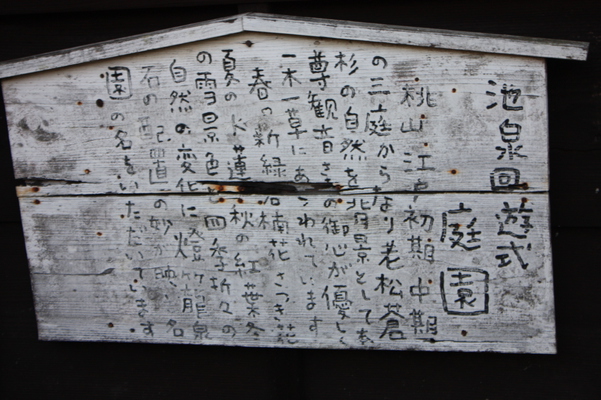 池泉回遊式
庭園
桃山・江戸初期・中期
の三庭からなり老松蒼
杉の自然を背景として
尊観音さまの御心が優しく
一木一草にあらわれています
春の新緑石楠花さつき花
夏の水蓮秋の紅葉冬
の雪景色と四季折々の
自然の変化に灯籠
石の配置の妙が映
園の名をいただいています